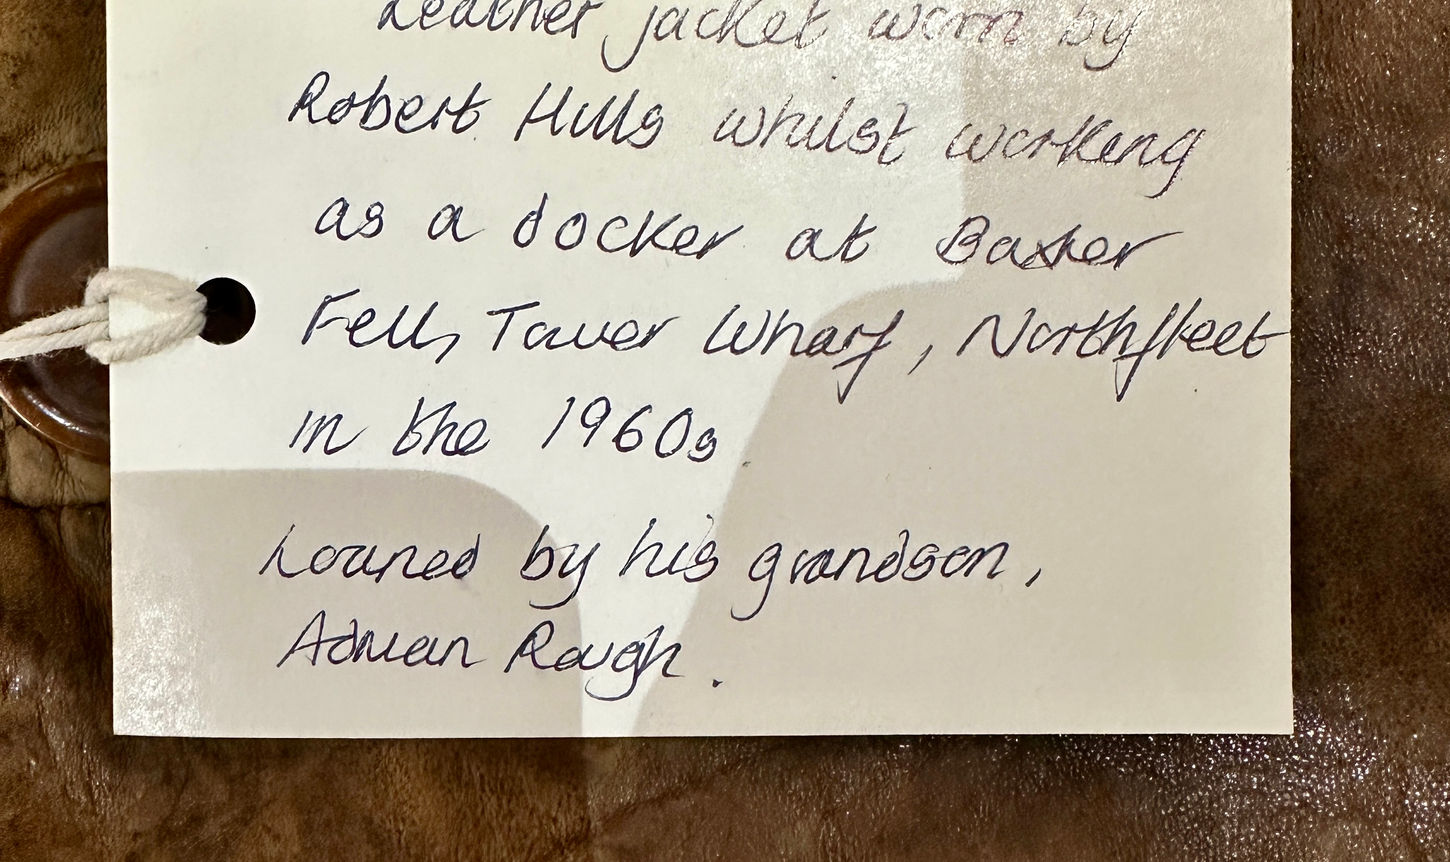 Leather jacket worn by
Robert Hills whilst working
as a docker at Baxter
Fell, Tower Wharf, Northfleet
in the 1960s
Loaned by his grandson,
Adrian Rough.